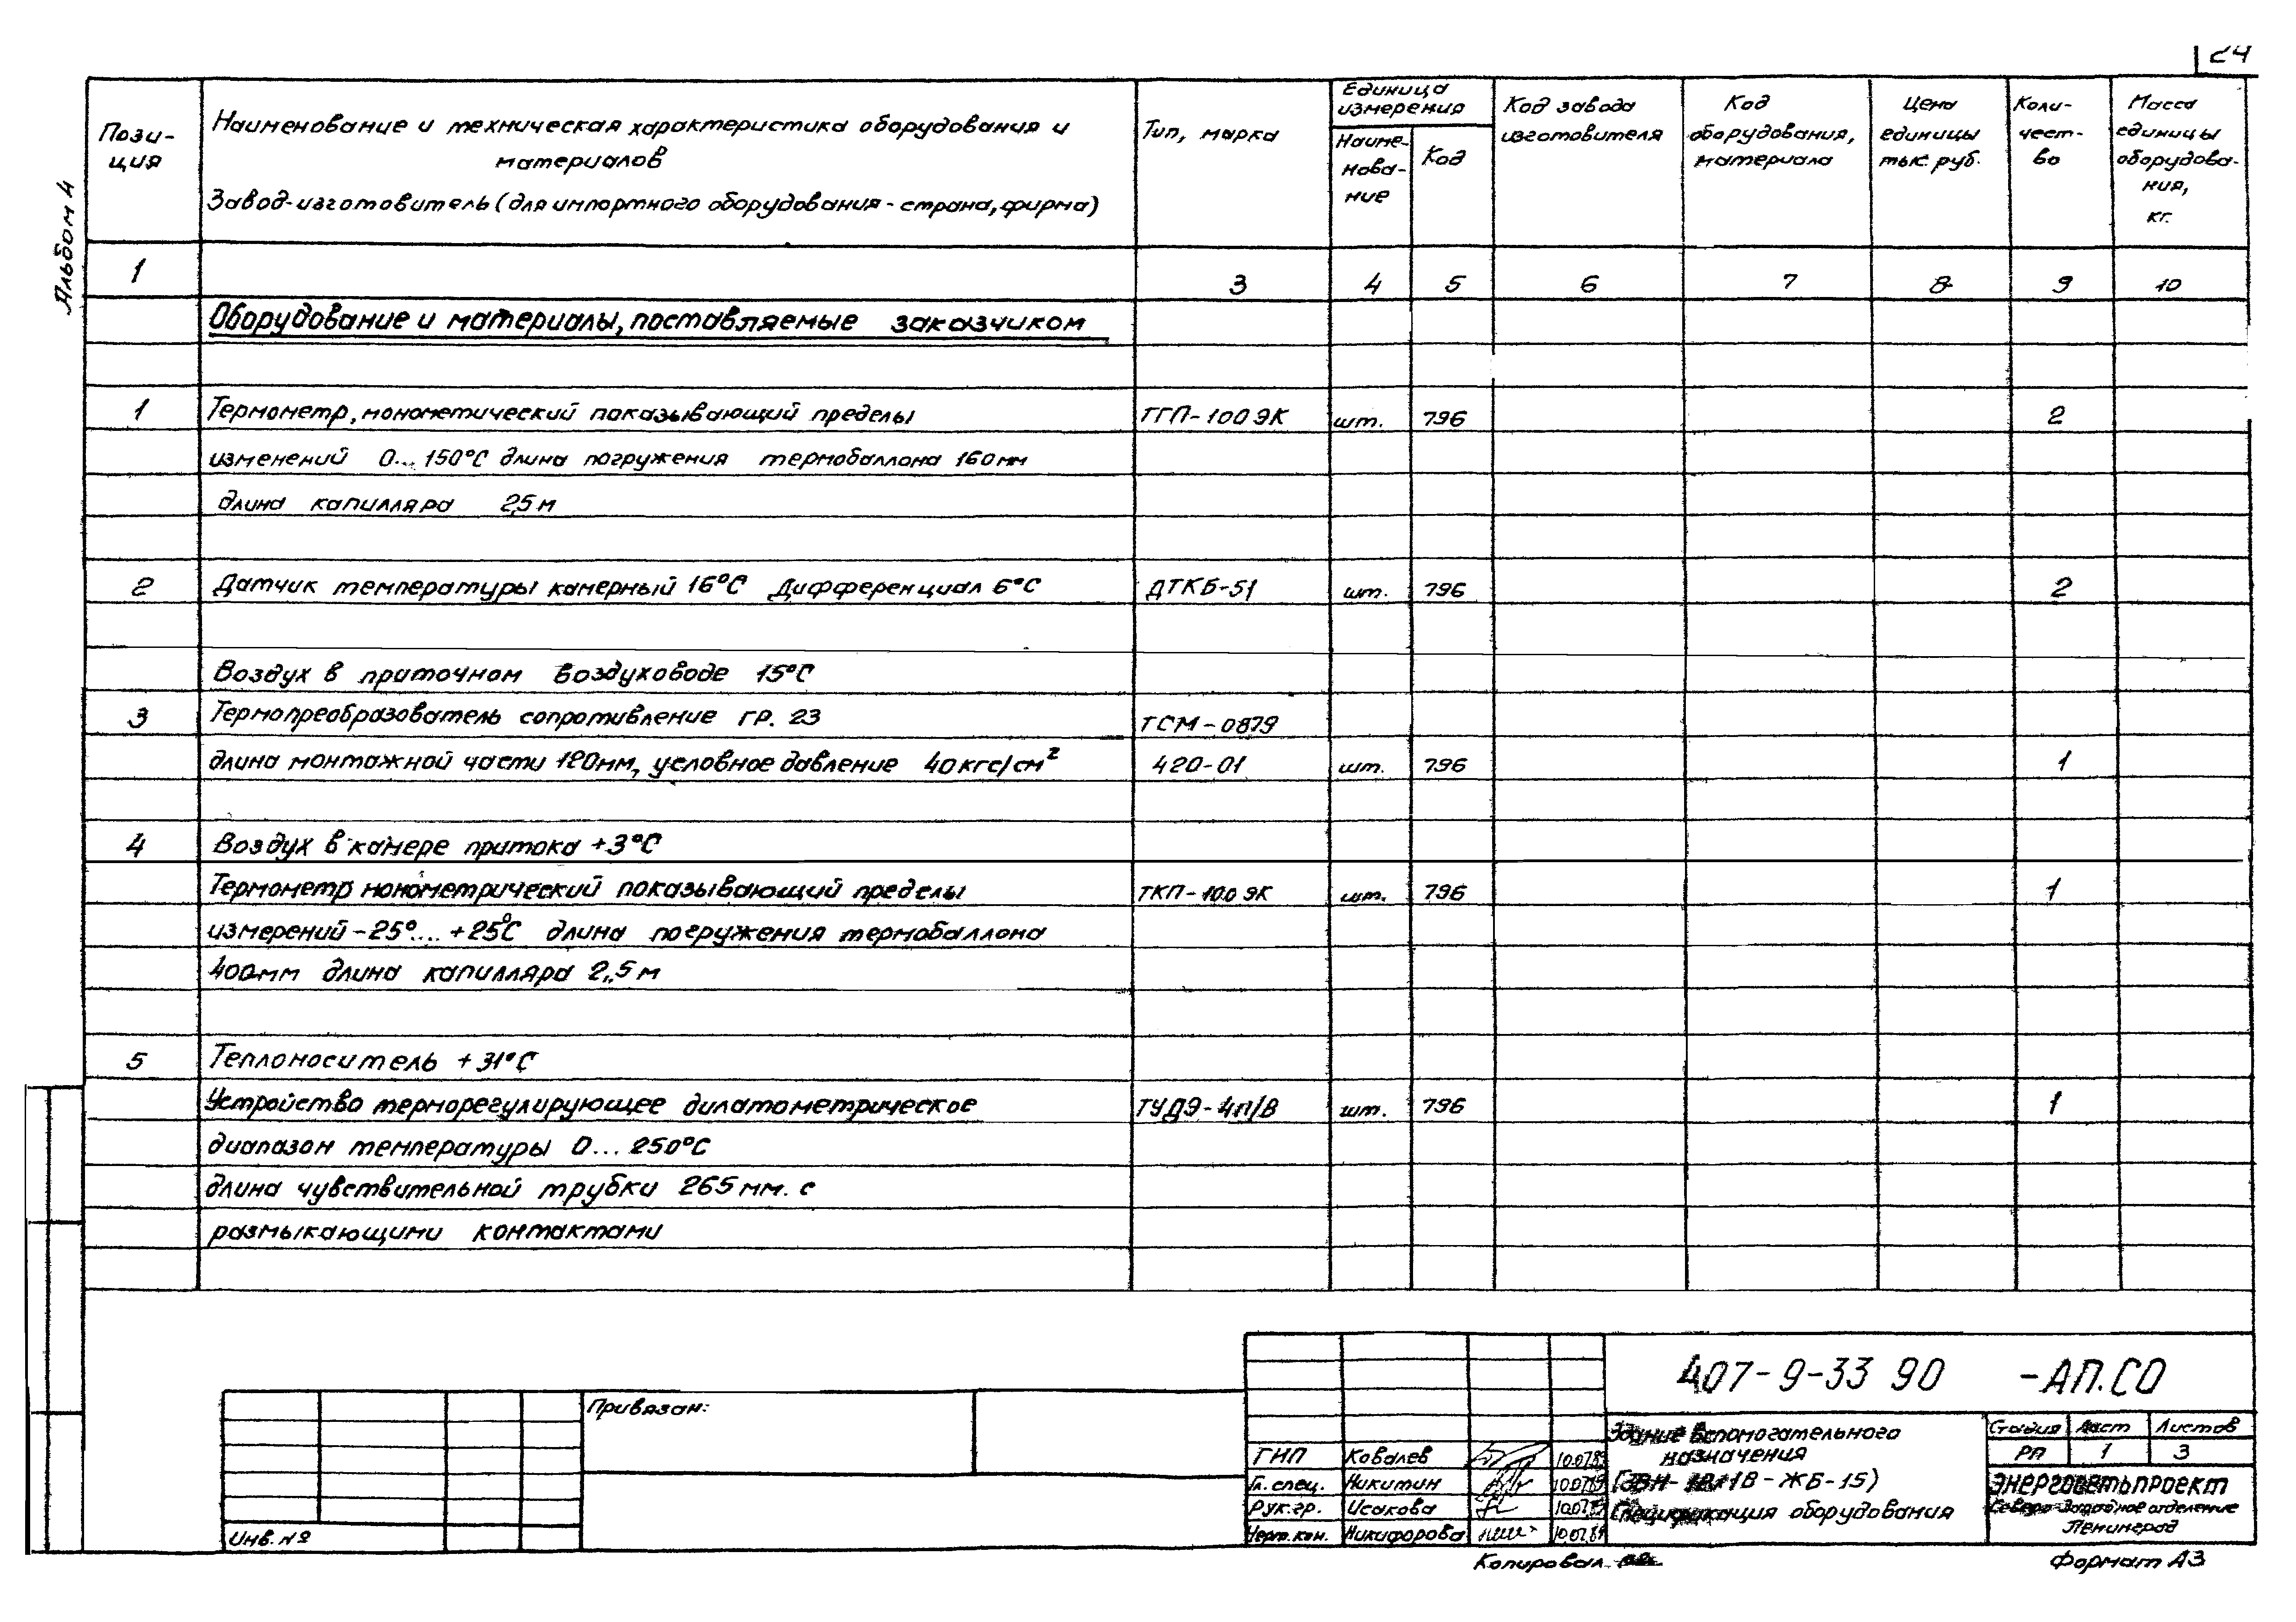 24
Альбом А
Пози-
ция
Наименование и техническая характеристика оборудования и
материалов
Завод-изготовитель (для импортного оборудования - страна, фирма)
Тип, марка
Единица
измерения
Наиме-
нова-
ние
Код
Код завода
изготовителя
Код
оборудования,
материала
Цена
единицы
тыс. руб.
Коли-
чест-
во
Масса
единицы
оборудова-
ния,
кг.
1 3 4 5 6 7 8 9 10
Оборудование и материалы, поставляемые заказчиком
1 Термометр, монометический показывающий пределы ТГП-100ЭК шт. 796 2
изменений 0... 150°С длина погружения термобаллона 160мм
длина капилляра 2,5м
2 Датчик температуры камерный 16°С Дифференциал 6°С ДТКБ-51 шт. 796 2
Воздух в приточном воздуховоде 15°С
3 Термопреобразователь сопротивление гр. 23 ТСМ-0879
длина монтажной части 120мм, условное давление 40кгс/см² 420-01 шт. 796 1
4 Воздух в камере притока +3°С
Термометр монометрический показывающий пределы ТКП-100ЭК шт. 796 1
измерений -25°... +25°С длина погружения термобаллона
400мм длина капилляра 2,5м
5 Теплоноситель +31°С
Устройство терморегулирующее дилатометрическое ТУДЭ-4П/В шт. 796 1
диапазон температуры 0... 250°С
длина чувствительной трубки 265мм. с
размыкающими контактами
Привязан:
Инв. №
407-9-33 90 -АП.СО
ГИП Ковалев 10.07.89
Гл. спец. Никитин 10.07.89
Рук. гр. Исакова 10.07.89
Норм. кон. Никифорова 10.07.89
Здание вспомогательного
назначения
-ЖБ-15)
Спецификация оборудования
Стадия Лист Листов
РП 1 3
ЭНЕРГОСЕТЬПРОЕКТ
Северо-Западное отделение
Ленинград
Копировал
Формат А3